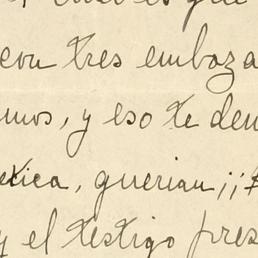 eso es que
con tres emboza
mos, y eso te den
etica, querian ¡¡
y el testigo pres